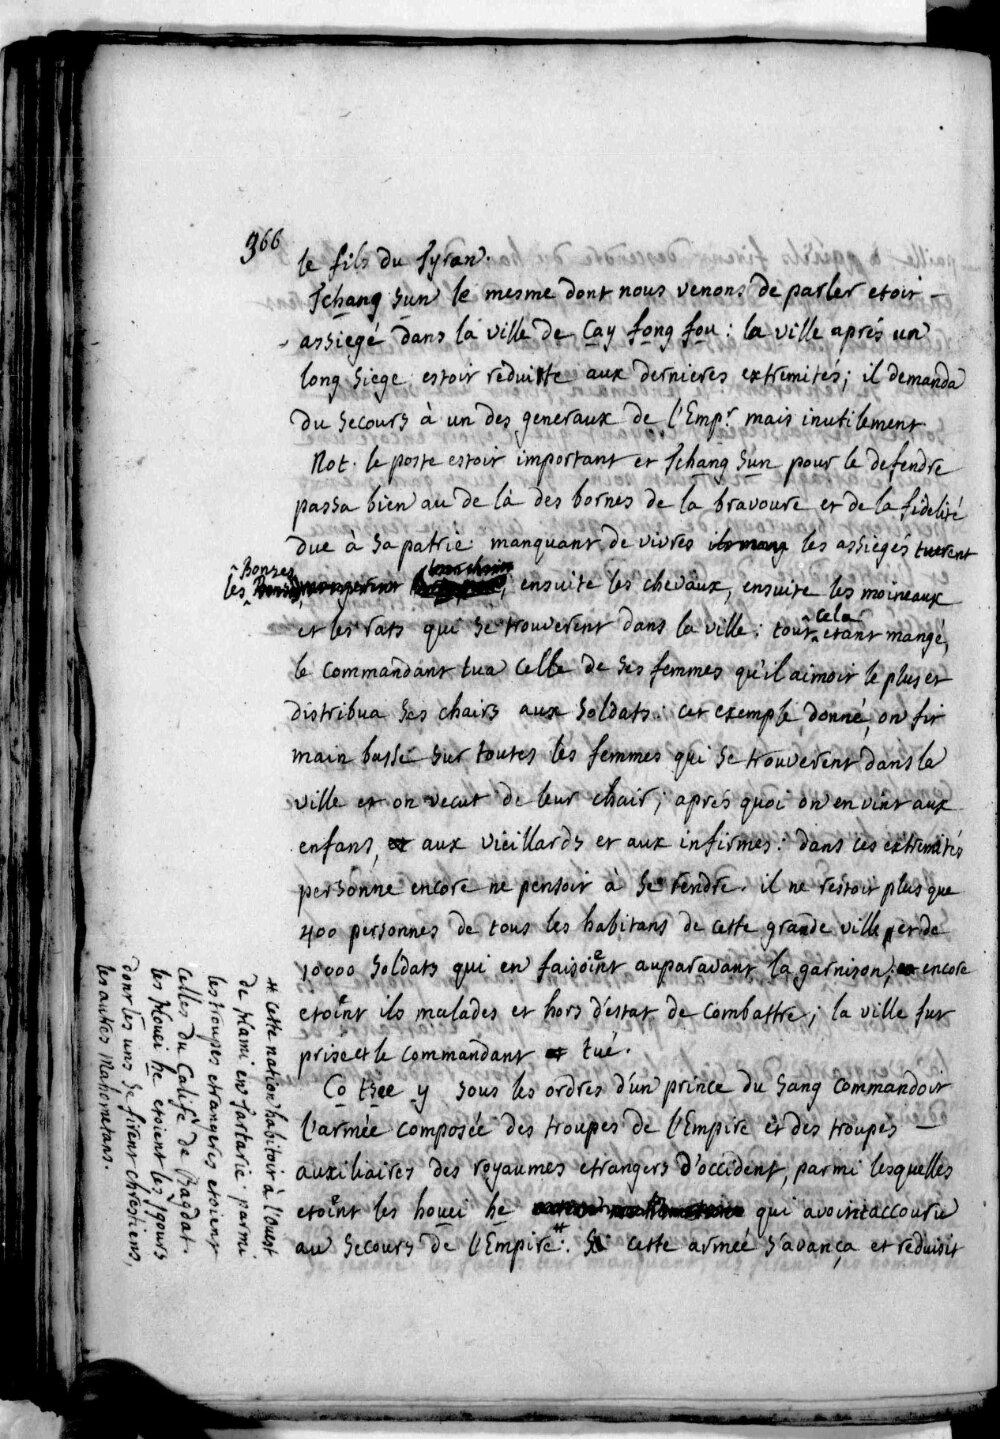 366
le fils du Tyran.
Tchang Sun le mesme dont nous venons de parler etoit
assiegé dans la ville de Cay fong fou : la ville aprés un
long siege estoit reduitte aux dernieres extremités; il demanda
du secours à un des generaux de l'Emp.r mais inutilement
Not. le poste estoit important et Tchang Sun pour le defendre
passa bien au de là des bornes de la bravoure et de la fidelité
due à sa patrie. manquant de vivres les assiegés tuerent
les Bonzes, ensuite les chevaux, ensuite les moineaux
et les rats qui se trouverent dans la ville : tout cela etant mangé,
le commandant tua celle de ses femmes qu'il aimoit le plus et
distribua ses chairs aux soldats : cet exemple donné, on fit
main basse sur toutes les femmes qui se trouverent dans la
ville et on vecut de leur chair; aprés quoi on en vint aux
enfans, aux vieillards et aux infirmes : dans ces extremités
personne encore ne pensoit à se rendre. il ne restoit plus que
400 personnes de tous les habitans de cette grande ville et de
10000 soldats qui en faisoint auparavant la garnison; encore
etoint ils malades et hors d'estat de combattre; la ville fut
prise et le commandant tué.
Co tsee y sous les ordres d'un prince du sang commandoit
l'armée composée des troupes de l'Empire et des troupes
auxiliaires des royaumes etrangers d'occident, parmi lesquelles
etoint les houei he qui avoint accouru
au secours de l'Empire #. cette armée s'avança et reduisit
# cette nation habitoit à l'Ouest
de Hami en Tartarie parmi
les troupes etrangeres etoient
celles du Calife de Bagdat.
les Houei he etoient les ygours
dont les uns se firent chrestiens,
les autres Mahometans.